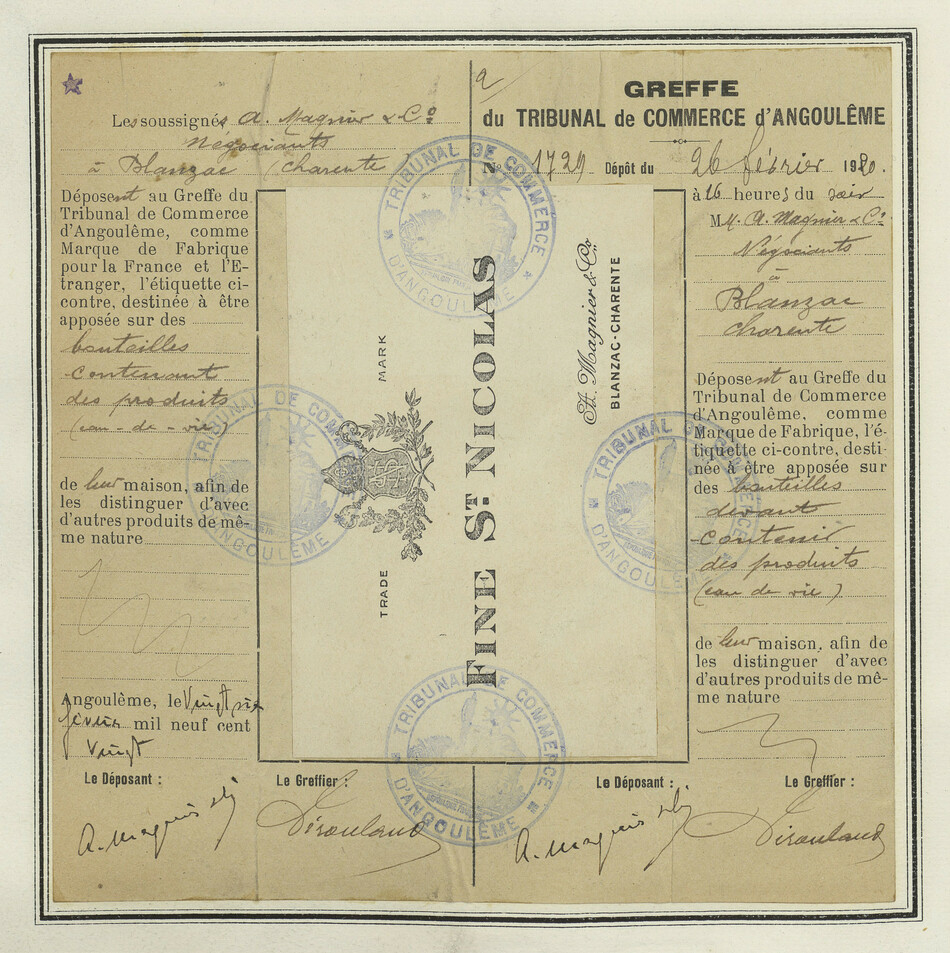 Les soussignés A. Magnier & Cº
Négociants
à Blanzac (charente
Déposent au Greffe du
Tribunal de Commerce
d'Angoulême, comme
Marque de Fabrique
pour la France et l'E-
tranger, l'étiquette ci-
contre, destinée à être
apposée sur des
bouteilles
contenant
des produits
(eau-de-vie)
de leur maison, afin de
les distinguer d'avec
d'autres produits de mê-
me nature
Angoulême, le Vingt six
février mil neuf cent
vingt
Le Déposant :
Le Greffier :
GREFFE
du TRIBUNAL de COMMERCE d'ANGOULÊME
Nº 1729 Dépôt du 26 février 1920.
à 16 heures du soir
MM. A. Magnier & Cº
Négociants
à
Blanzac
charente
Déposent au Greffe du
Tribunal de Commerce
d'Angoulême, comme
Marque de Fabrique, l'é-
tiquette ci-contre, desti-
née à être apposée sur
des bouteilles
devant
contenir
des produits
(eau de vie)
de leur maison, afin de
les distinguer d'avec
d'autres produits de mê-
me nature
Le Déposant :
Le Greffier :
TRADE MARK
FINE ST. NICOLAS
A. Magnier & Co.
BLANZAC-CHARENTE
TRIBUNAL DE COMMERCE
D'ANGOULÊME
TRIBUNAL DE COMMERCE
D'ANGOULÊME
TRIBUNAL DE COMMERCE
D'ANGOULÊME
TRIBUNAL DE COMMERCE
D'ANGOULÊME